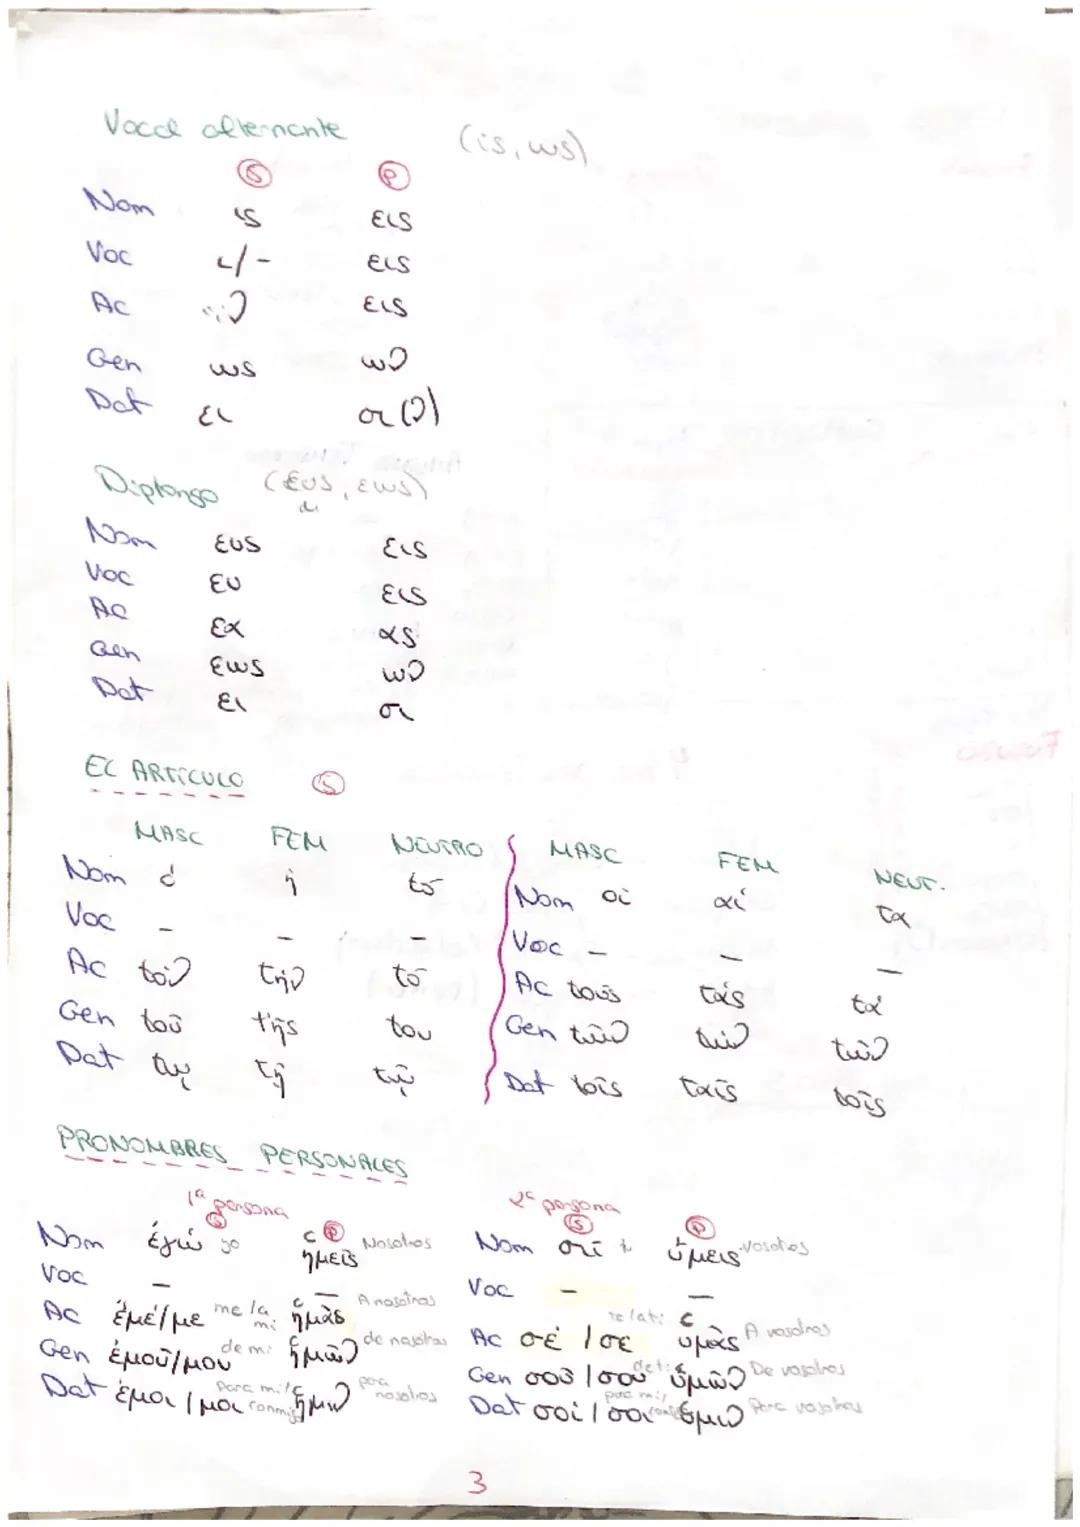 Vocal alternante (is, ws)
Ⓢ Ⓟ
Nom ις εις
Voc ι/- εις
Ac ιν εις
Gen ως ων
Dat ει σι(ν)
Diptongo (ευς, εως)
Nom ευς εις
Voc ευ εις
Ac εα ας
Gen εως ων
Dat ει σι
EL ARTÍCULO Ⓢ
MASC FEM NEUTRO MASC FEM NEUT.
Nom ὁ ἡ τό Nom οἱ αἱ τα
Voc - - - Voc - - -
Ac τόν τήν τό Ac τούς τάς τά
Gen τοῦ τῆς του Gen τῶν τῶν τῶν
Dat τῳ τῇ τῷ Dat τοῖς ταῖς τοῖς
PRONOMBRES PERSONALES
1ª persona 2ª persona
Ⓢ Ⓟ Ⓢ Ⓟ
Nom ἐγώ yo ἡμεῖς Nosotros Nom σύ tu ὑμεις vosotros
Voc - - Voc - -
Ac ἐμέ/με me/a mi ἡμᾶς A nosotros Ac σέ / σε te/a ti ὑμᾶς A vosotros
Gen ἐμοῦ/μου de mi ἡμῶν de nosotros Gen σοῦ / σου de ti ὑμῶν De vosotros
Dat ἐμοι / μοι para mi/conmigo ἡμιν para nosotros Dat σοί / σοι para mi/ ὑμιν Para vosotros
3